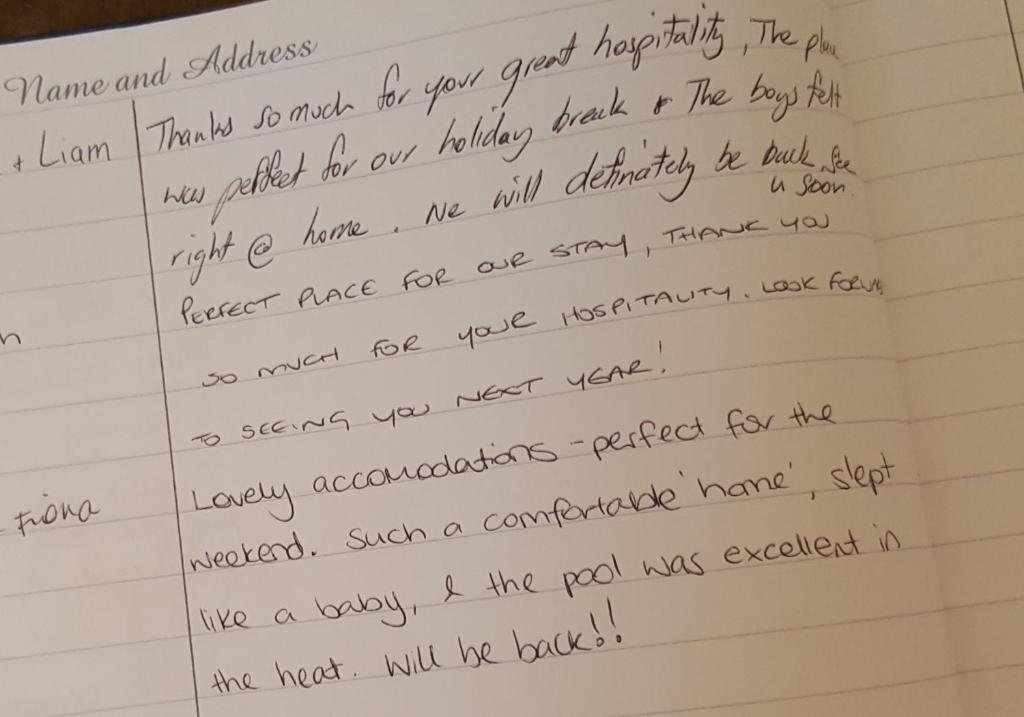 Name and Address
+ Liam
Thanks so much for your great hospitality, The
was perfect for our holiday break & The boys felt
right @ home. We will definately be back. See
u soon.
PERFECT PLACE FOR OUR STAY, THANK YOU
SO MUCH FOR YOUR HOSPITALITY. LOOK
TO SEEING YOU NEXT YEAR!
Fiona
Lovely accomodations - perfect for the
weekend. Such a comfortable 'home', slept
like a baby, & the pool was excellent in
the heat. Will be back!!